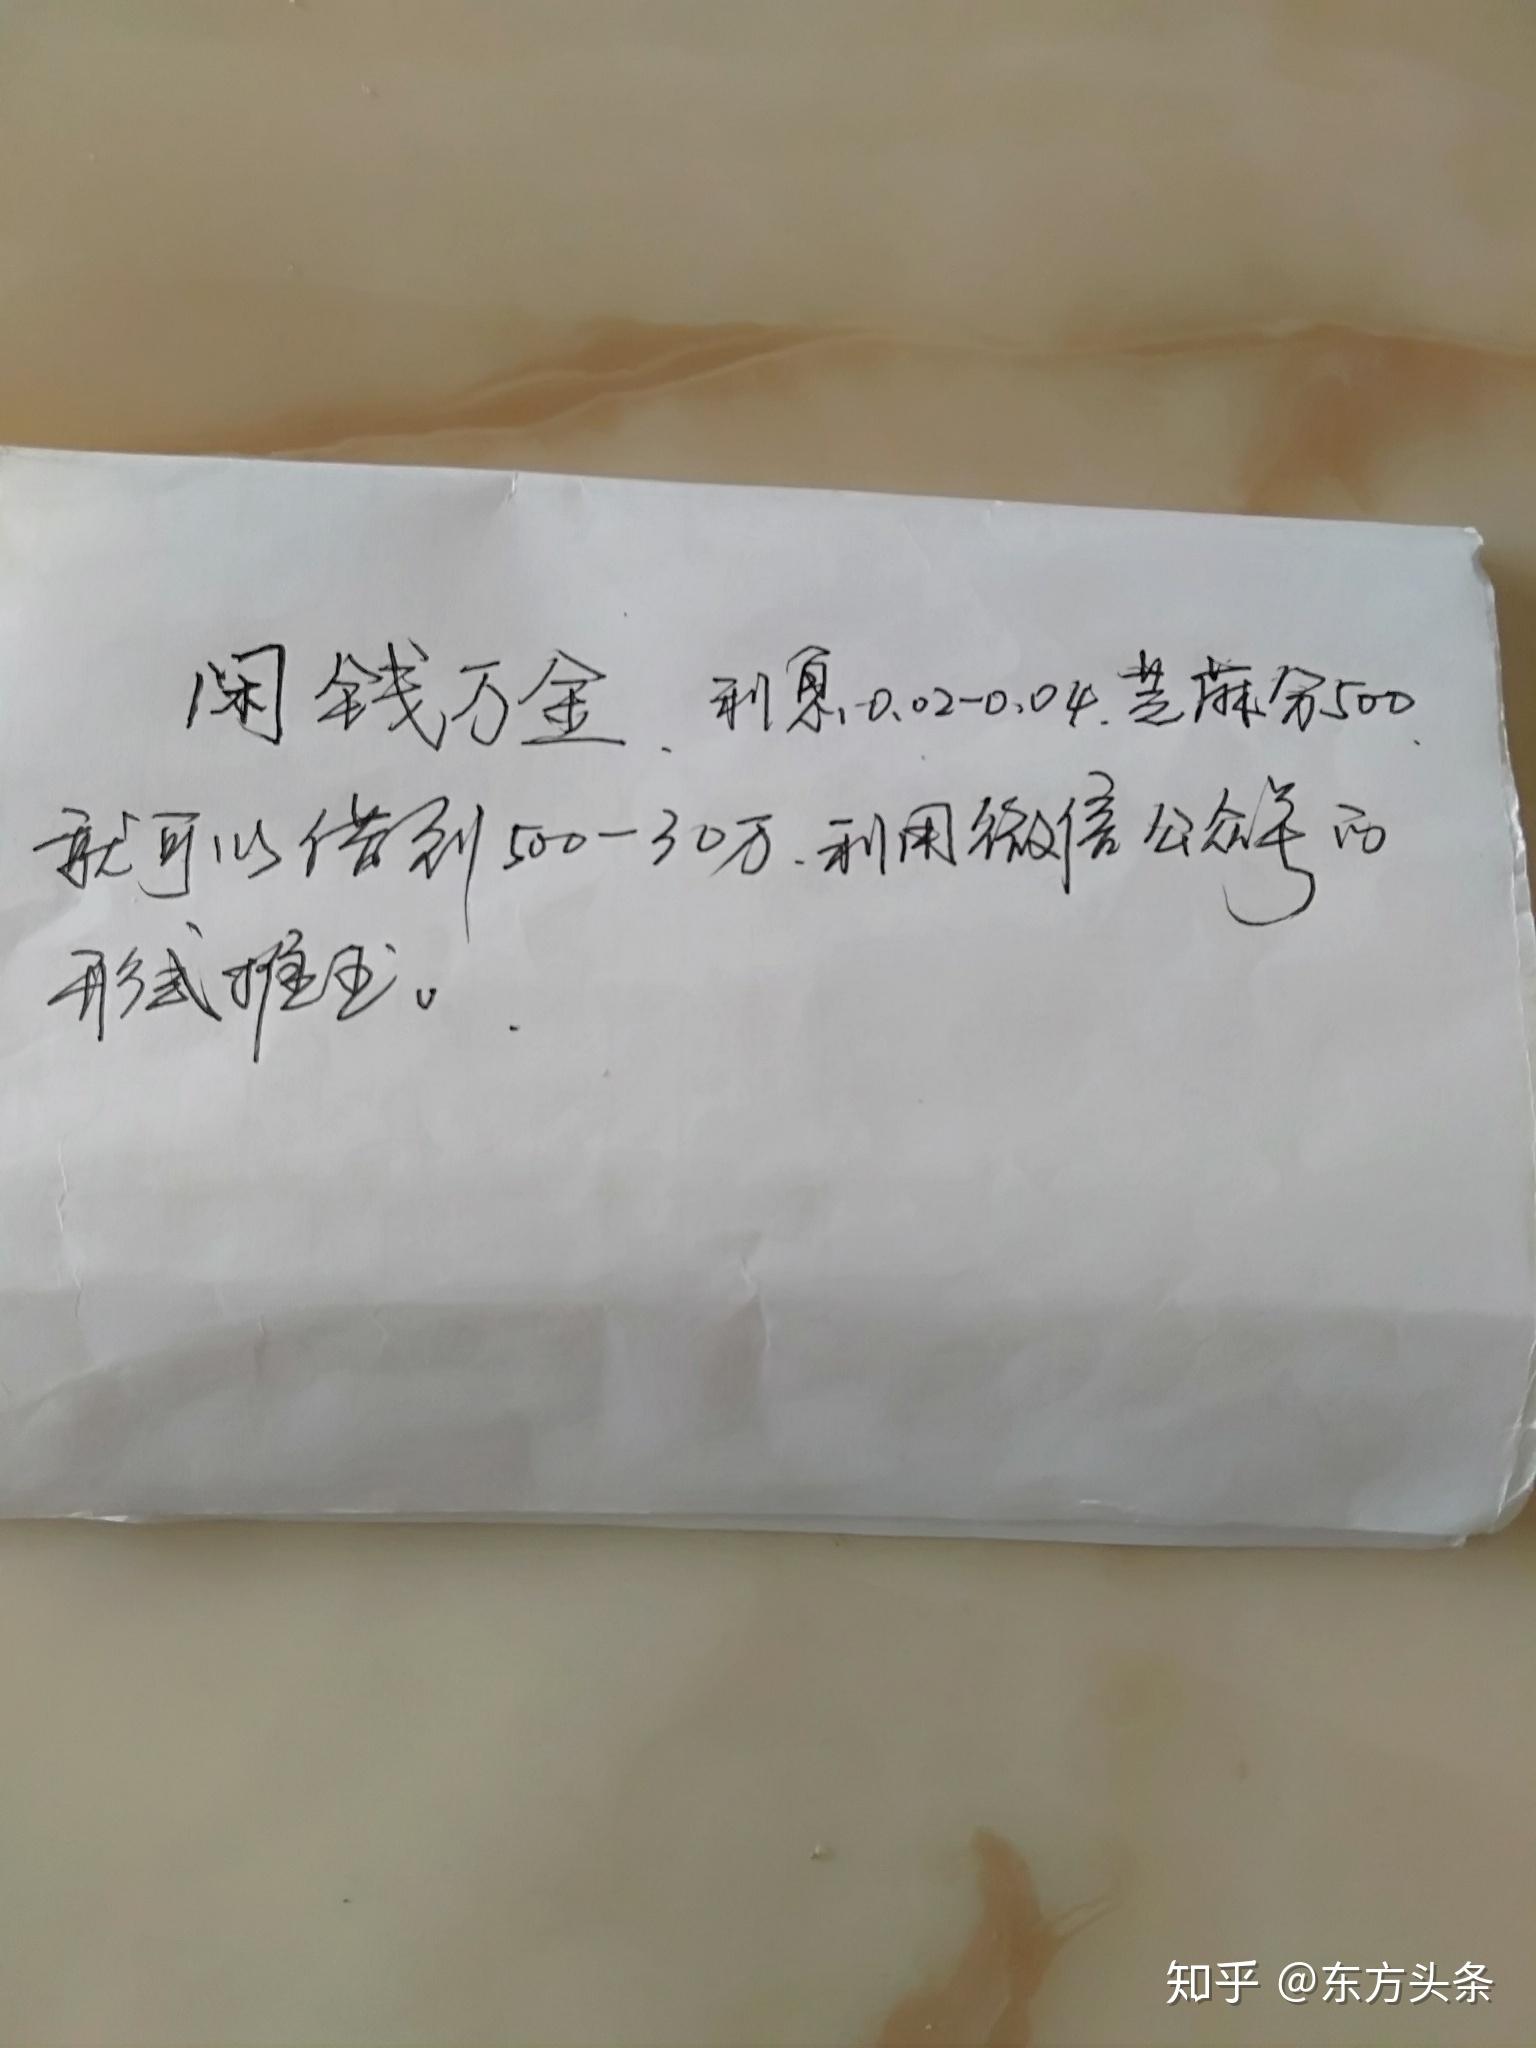 闲钱万金、利息、0.02-0.04.芝麻分500、
就可以借到500-30万.利用微信公众号的
形式推出。
知乎 @东方头条